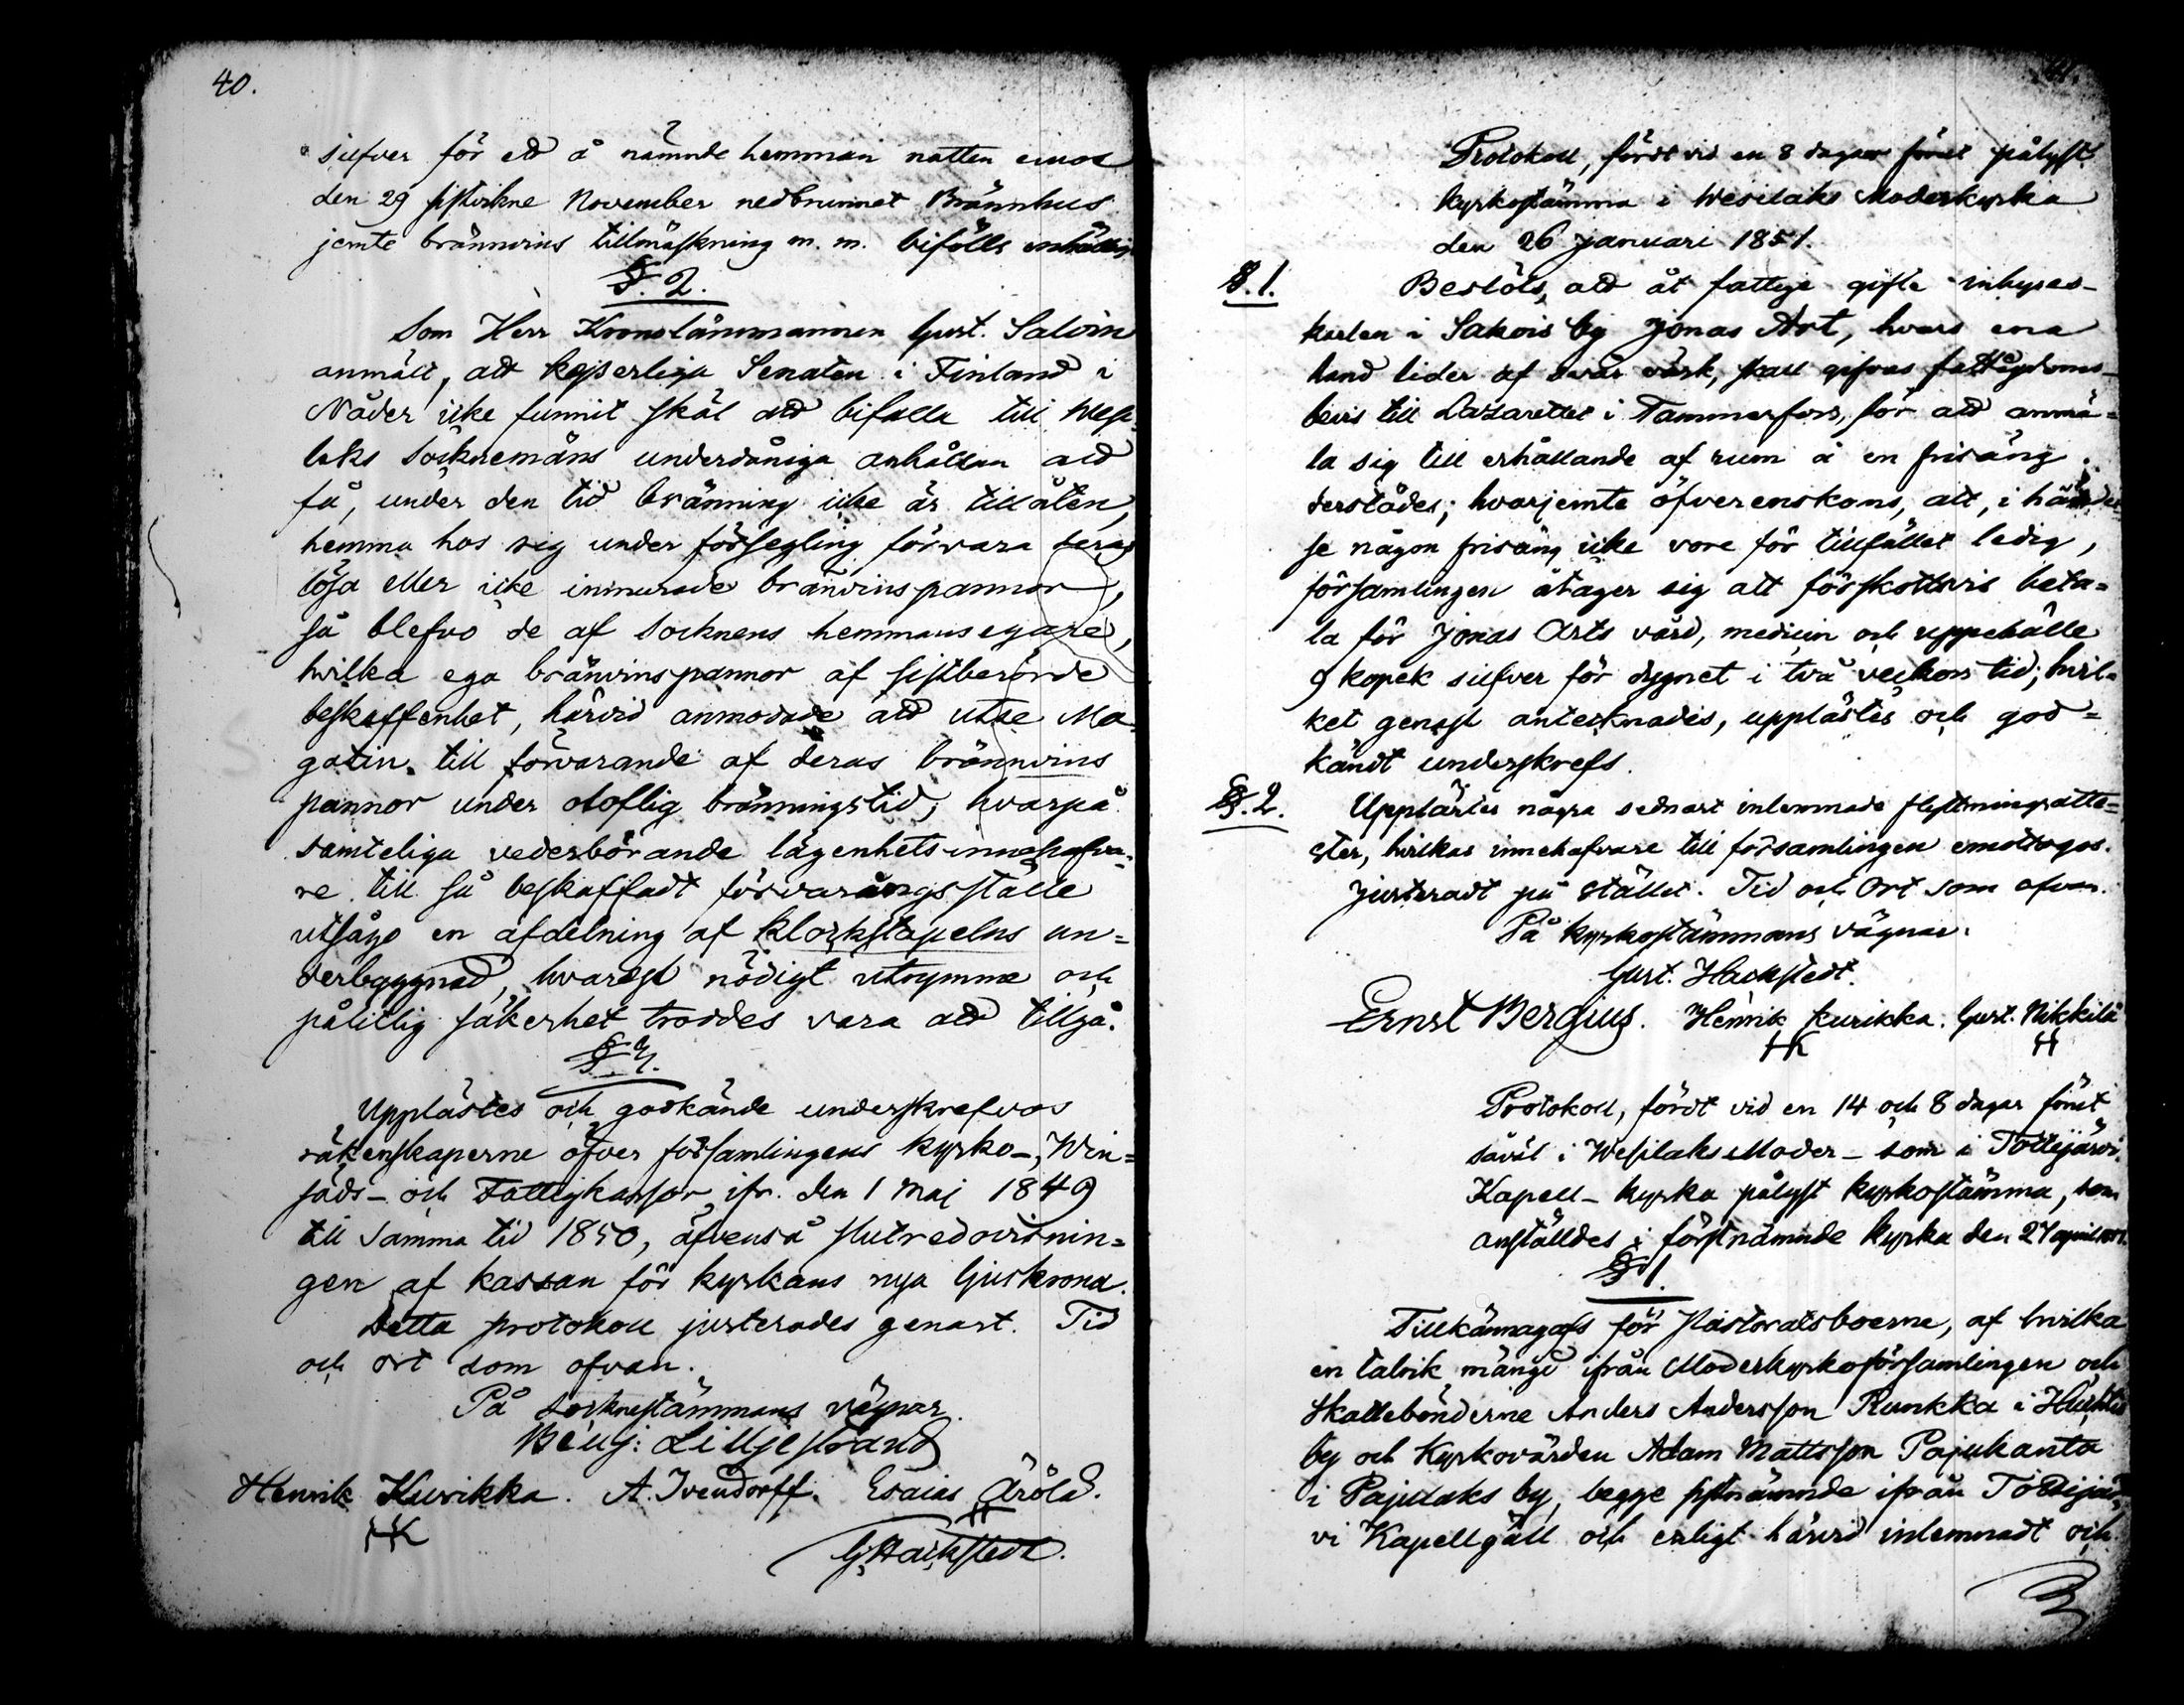 40.
silfver för ett å nämnde hemman natten emot
den 29 sistvikne November nedbrunnet Brännhus
jemte brännvins tillmäskning m. m. bifölls enhälligt
§. 2.
Som Herr Kronolänsmannen Gust. Salvin
anmält, att kejserliga Senaten i Finland i
Nåder icke funnit skäl att bifalla till Wesi-
laks Socknemäns underdåniga anhållan att
få, under den tid bränning icke är tillåten,
hemma hos sig under försegling förvara deras
lösa eller icke inmurade bränvinspannor,
så blefvo de af Socknens hemmansegare,
hvilka ega bränvinspannor af sistberörde
beskaffenhet, härvid anmodade att utse Ma-
gatin till förvarande af deras brännvins
pannor under oloflig bränningstid; hvarpå
samteliga vederbörande lägenhetsinnehafva-
re till så beskaffadt förvaringsställe
utsågo en afdelning af klockstapelns un=
derbyggnad, hvarest nödigt utrymme och
pålitlig säkerhet troddes vara att tillgå.
§. 3.
Upplästes och godkände underskrefvos
räkenskaperne öfver församlingens Kyrko-, Win=
säds- och Fattigkassor ifr. den 1 Maj 1849
till samma tid 1850, äfvenså slutredovisnin=
gen af kassan för kyrkans nya ljuskrona.
Detta protokoll justerades genast. Tid
och ort som ofvan.
På Socknestämmans vägnar
Benj: Liljestrand
Henrik Kurikka. A. Ivendorff. Esaias Äröla.
HK
G. Hackstedt.
41.
Protokoll, fördt vid en 8 dagar förut pålyst
kyrkostämma i Wesilaks Moderkyrka
den 26 Januari 1851.
§. 1.
Beslöts, att åt fattige gifte inhyses-
karlen i Sakois by Jonas Art, hvars ena
hand lider af svår värk, skall gifvas fattigdoms-
bevis till Lazarettet i Tammerfors, för att anmä=
la sig till erhållande af rum å en frisäng
derstädes; hvarjemte öfverenskoms, att, i händel-
se någon frisäng icke vore för tillfället ledig,
församlingen åtager sig att förskottsvis beta=
la för Jonas Arts vård, medicin och uppehälle
9 kopek silfver för dygnet i två veckors tid; hvil=
ket genast antecknades, upplästes och god=
kändt underskrefs.
§. 2.
Upplästes några sednast inlemnade flyttningsatte=
ster, hvilkas innehafvare till församlingen emottogos.
Justeradt på stället. Tid och Ort som ofvan.
På kyrkostämmans vägnar.
Gust. Hackstedt.
Ernst Bergius. Henrik Kurikka. Gust. Nikkilä
HK
Protokoll, fördt vid en 14 och 8 dagar förut
såväl i Wesilaks Moder- som i Tottijärvi
Kapell-kyrka pålyst kyrkostämma, som
anställdes i förstnämnde kyrka den 27 april 1851.
§ 1.
Tillkännagafs för Pastoratsboerne, af hvilka
en talrik mängd ifrån Moderkyrkoförsamlingen och
Skattebönderne Anders Andersson Runkka i Huhtis
by och Kyrkovärden Adam Mattsson Pajukanta
i Pajulaks by, begge sistnämnde ifrån Tottijär-
vi Kapellgäll och enligt härvid inlemnadt och